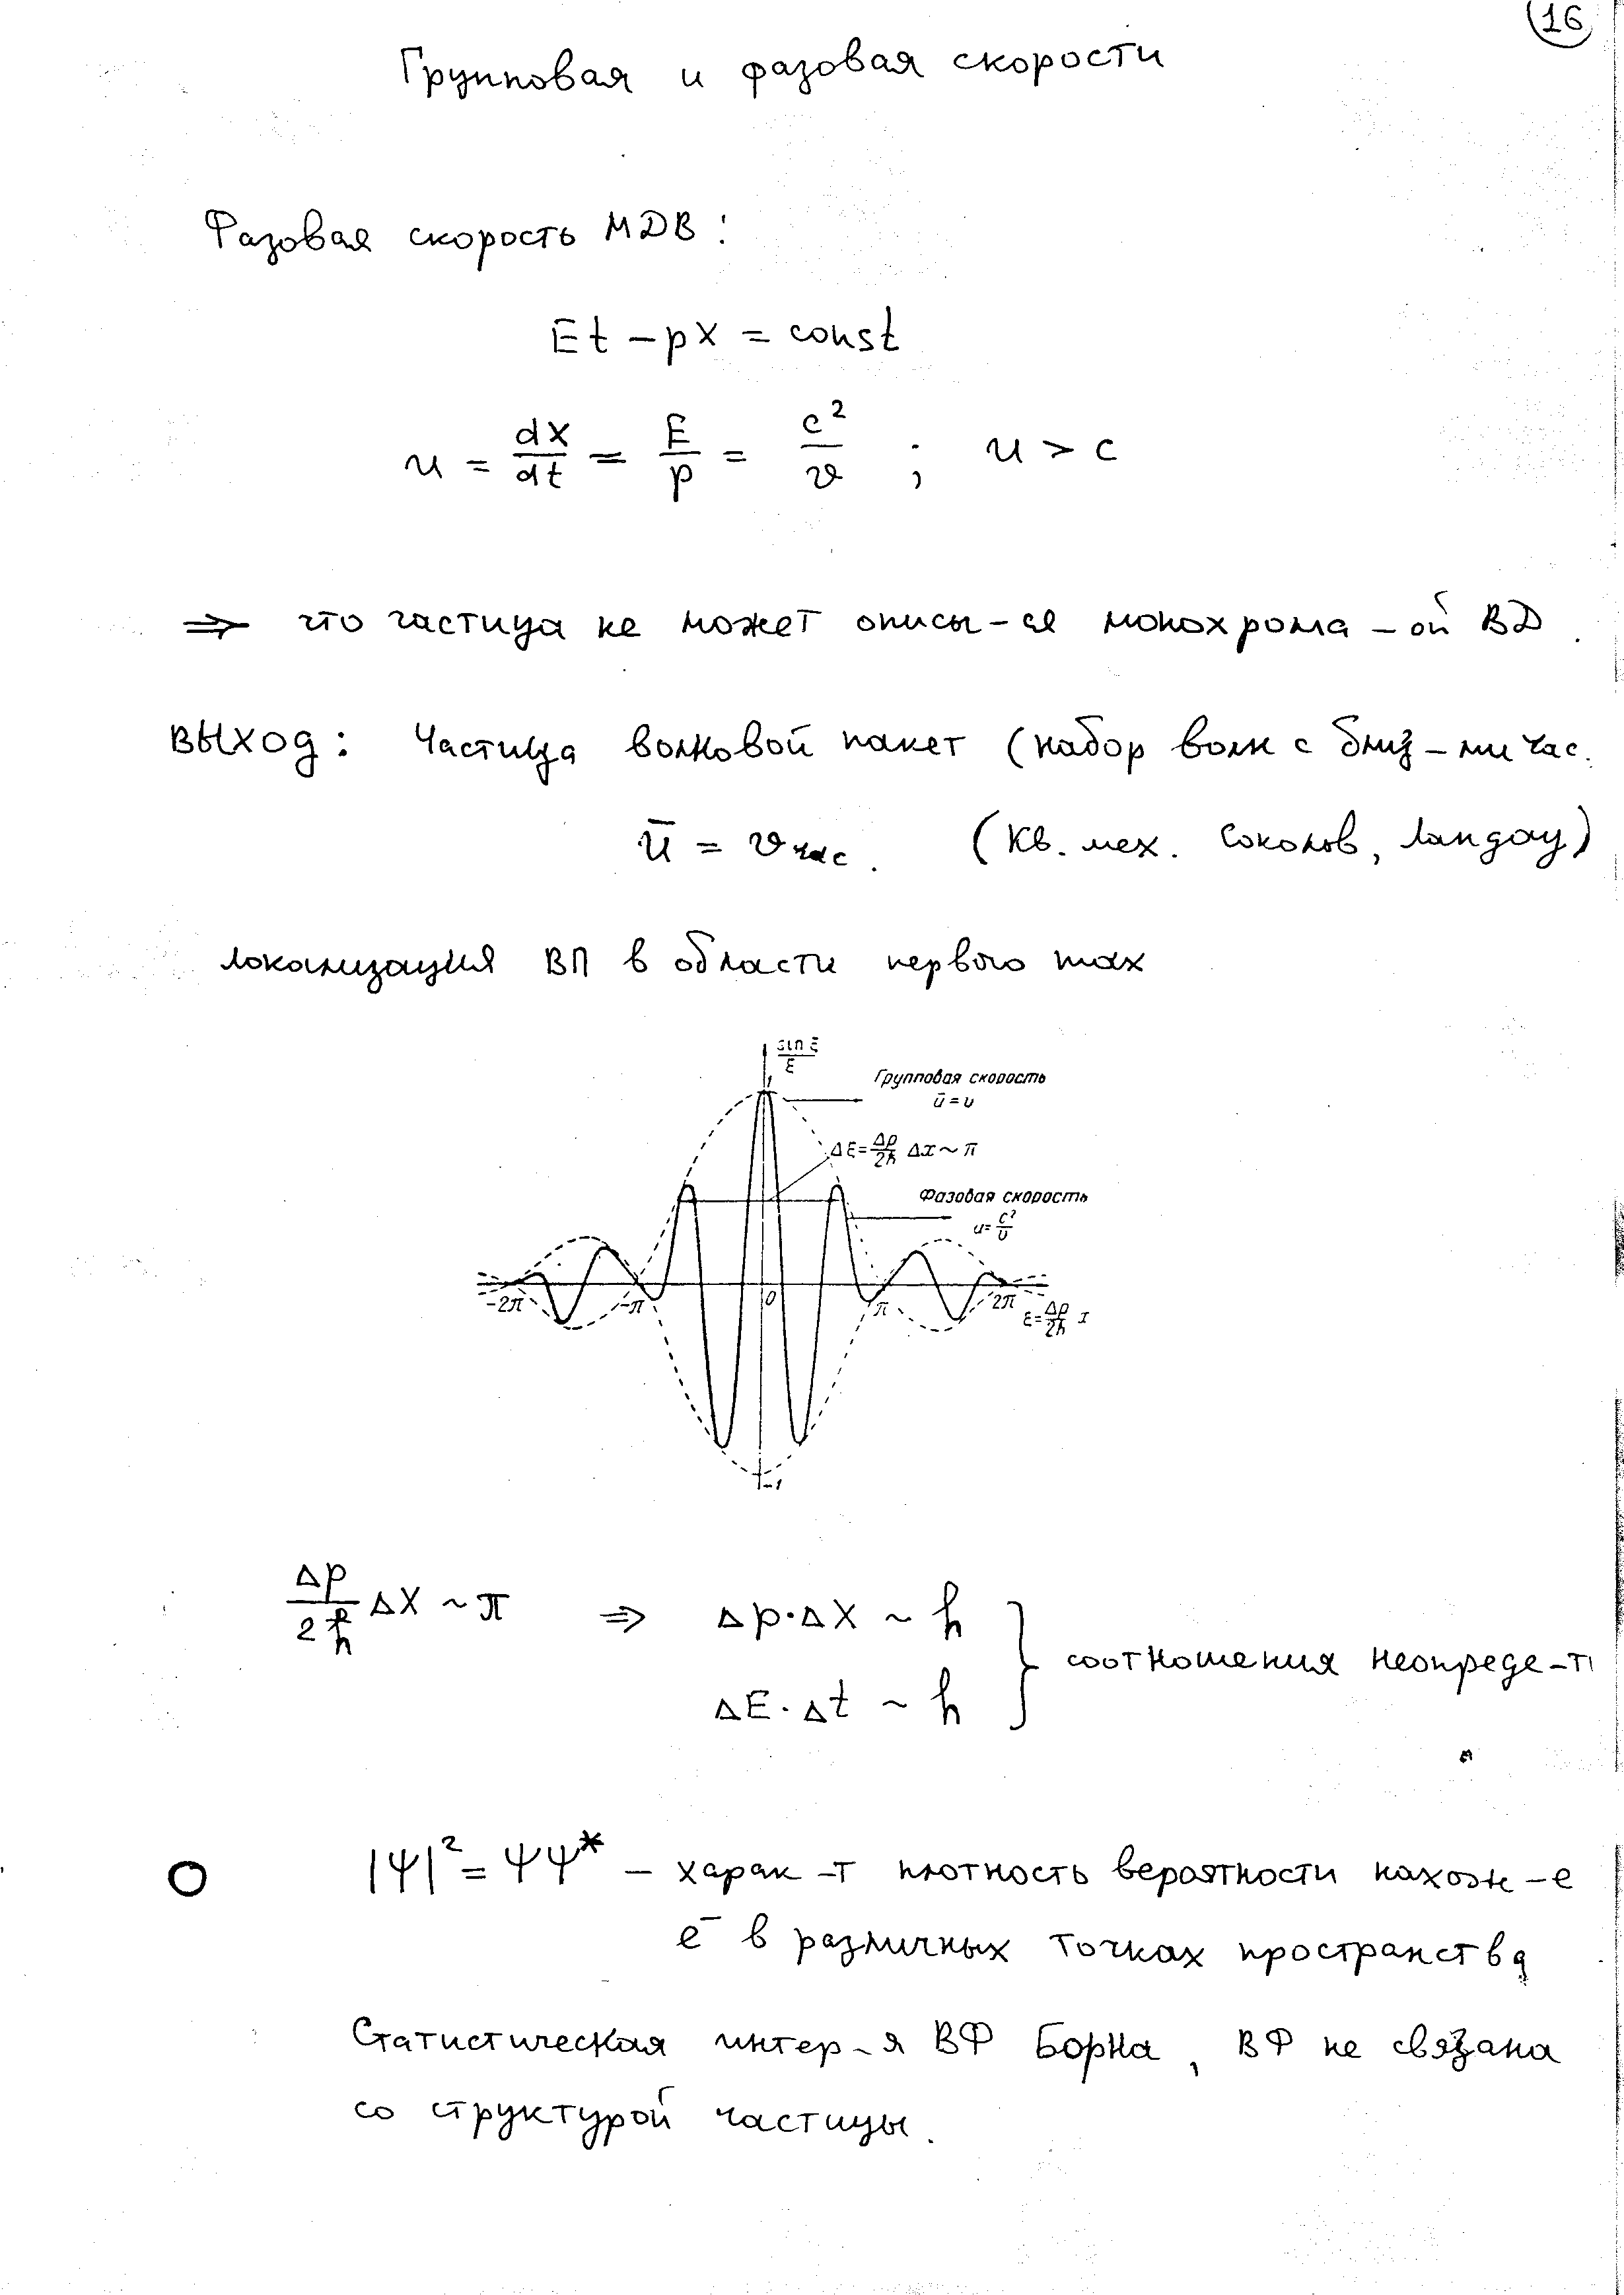 16
Групповая и фазовая скорости
Фазовая скорость МДВ:
Et − px = const
u = dx/dt = E/p = c²/v ; u > c
⇒ что частица не может описы-ся монохрома-ой ВД.
Выход: Частица волновой пакет (набор волн с близ-ми час.
ū = v час. (Кв. мех. Соколов, Ландау)
Локализация ВП в области первого max
sin ξ/ξ
1
Групповая скорость
ū = v
Δξ = Δp/2ħ Δx ~ π
Фазовая скорость
u = c²/v
-2π -π 0 π 2π
ξ = Δp/2ħ x
-1
Δp/2ħ Δx ~ π ⇒ Δp·Δx ~ ħ
ΔE·Δt ~ ħ } соотношения неопреде-ти
|Ψ|² = ΨΨ* − харак-т плотность вероятности нахожд-е
e⁻ в различных точках пространства
Статистическая интер-я ВФ Борна, ВФ не связана
со структурой частицы.